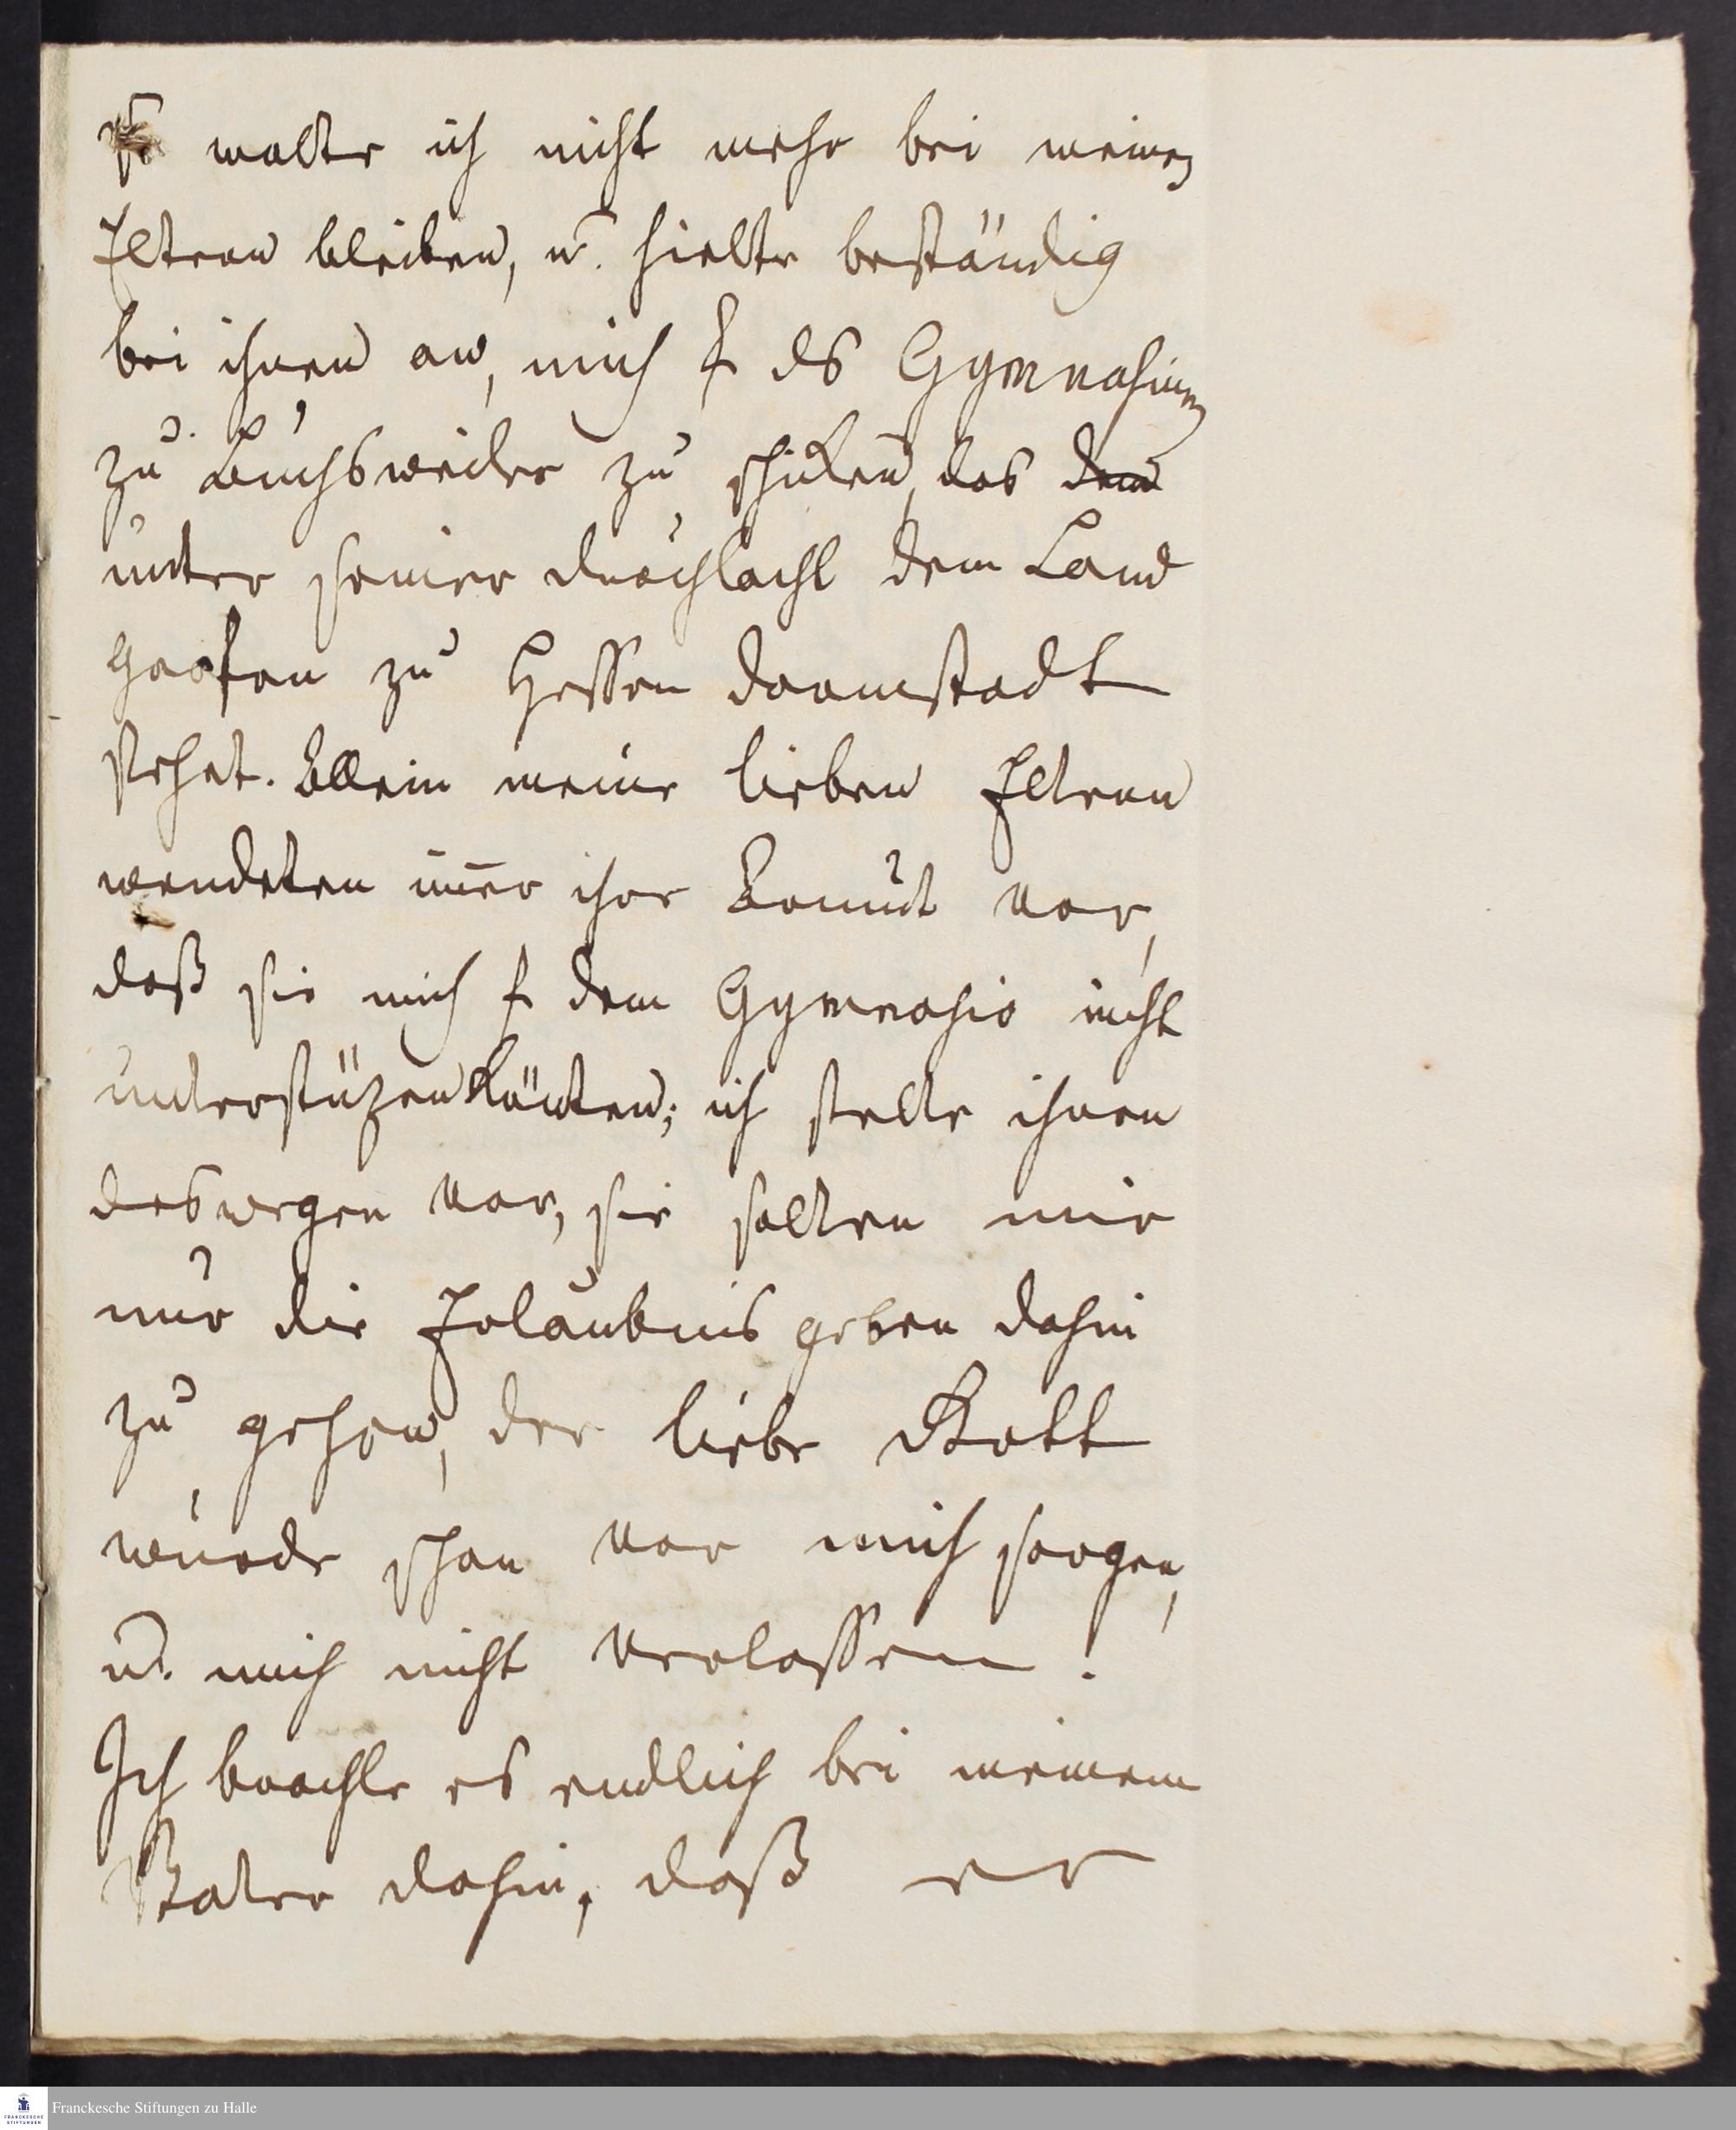 so wolte ich nicht mehr bei meinen
Eltern bleiben, u. hielte beständig
bei ihnen an, mich f ds Gymnasium
zu Buchsweiler zu schiken, das dem
unter seiner durchlacht dem Land
Grafen zu Hessen darmstadt
stehet. Allein meine lieben Eltern
wendeten im̄er ihre Armut vor,
daß sie mich f dem Gymnasio nicht
unterstüzen könten; ich stelte ihnen
deswegen vor, sie solten mir
nur die Erlaubnis geben dahin
zu gehen, der liebe Gott
würde schon vor mich sorgen,
u. mich nicht verlassen!
Ich brachte es endlich bei meinem
Vater dahin, daß er
FRANCKESCHE STIFTUNGEN
Franckesche Stiftungen zu Halle